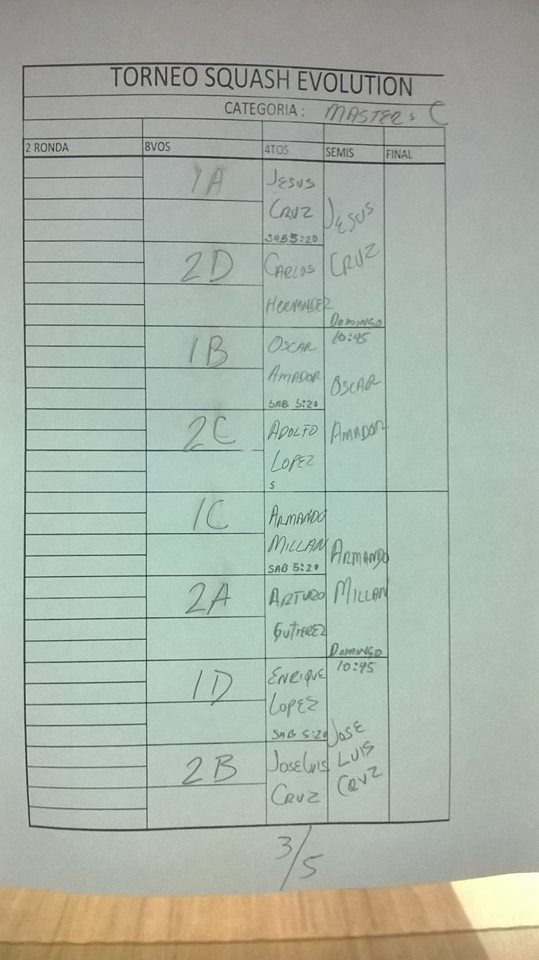 TORNEO SQUASH EVOLUTION
CATEGORIA: MASTERS C
2 RONDA 8VOS 4TOS SEMIS FINAL
1A
JESUS
CRUZ
SAB 5:20
2D
CARLOS
HERNANDEZ
JESUS
CRUZ
DOMINGO
10:45
1B
OSCAR
AMADOR
SAB 5:20
2C
ADOLFO
LOPEZ
S
OSCAR
AMADOR
1C
ARMANDO
MILLAN
SAB 5:20
2A
ARTURO
GUTIEREZ
ARMANDO
MILLAN
DOMINGO
10:45
1D
ENRIQUE
LOPEZ
SAB 5:20
2B
JOSE LUIS
CRUZ
JOSE
LUIS
CRUZ
3/5